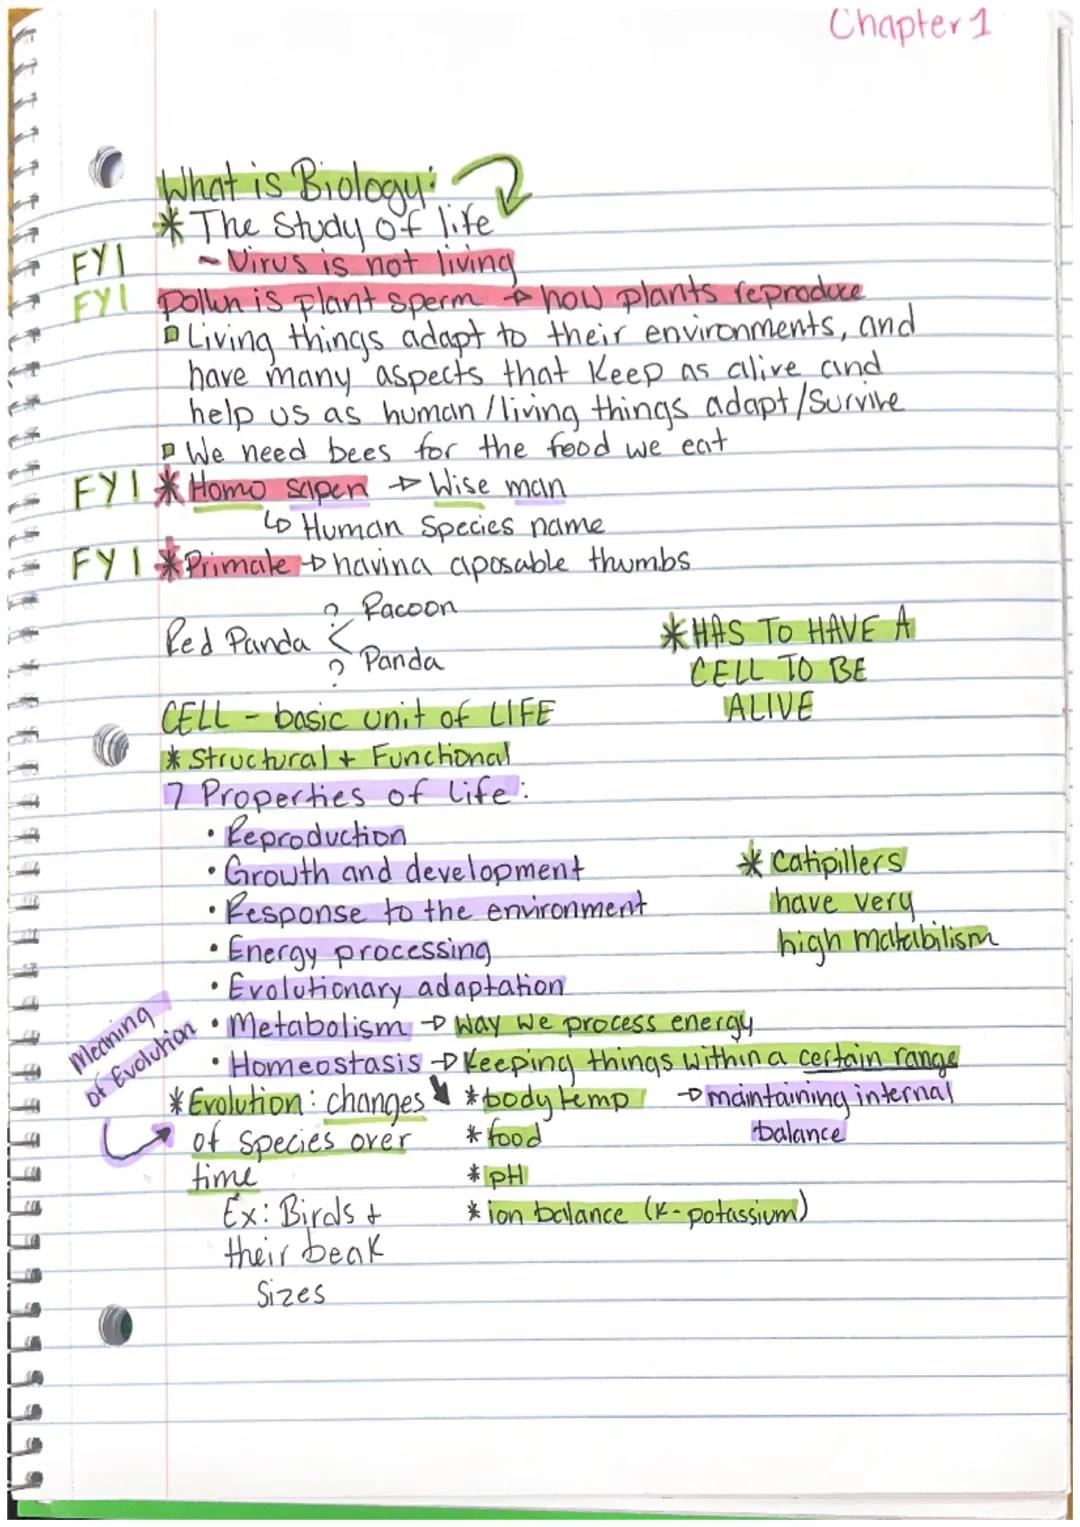 Chapter 1
What is Biology:
* The Study of life
FYI ~ Virus is not living
FYI pollun is plant sperm → how plants reproduce
Living things adapt to their environments, and
have many aspects that keep as alive and
help us as human/living things adapt/survive
We need bees for the food we eat
FYI * Homo sapen → Wise man
↳ Human Species name
FYI * Primate → having aposable thumbs
? Racoon
Red Panda <
? Panda
* HAS TO HAVE A
CELL TO BE
ALIVE
CELL - basic unit of LIFE
* Structural + Functional
7 Properties of Life:
• Reproduction
• Growth and development
• Response to the environment
• Energy processing
• Evolutionary adaptation
• Metabolism → Way we process energy
• Homeostasis → Keeping things within a certain range
* Catipillers
have very
high matabilism
Meaning
of Evolution
* Evolution: changes
of species over
time
Ex: Birds +
their beak
Sizes
* body temp
* food
* pH
* ion balance (K-potassium)
→ maintaining internal
balance